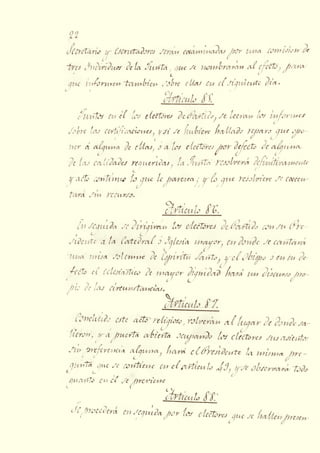 22
Secretario y Escrutadores seran examinadas por una comision de
tres Individuos de la Junta, que se nombrarán al efecto, para
que informen tambien sobre ellas en el siguiente dia.
Articulo 85.
Juntos en él los electores de Partido, se leeran los informes
sobre las certificaciones, y si se hubiere hallado reparo que opo-
ner á alguna de ellas, ó a los electores por defecto de alguna
de las calidades requeridas, la Junta resolverá definitivamente
y acto continuo lo que le parezca; y lo que resolviere se ejecu-
tará sin recurso.
Articulo 86.
En seguida se dirigiran los electores de Partido con su Pre-
sidente a la Catedral o Iglesia mayor, en donde se cantará
una misa solemne de Espiritu Santo, y el Obispo o en su de-
fecto el eclesiastico de mayor dignidad hará un discurso pro-
pio de las circunstancias.
Articulo 87.
Concluido este acto religioso, volverán al lugar de donde sa-
lieron; y a puerta abierta ocupando los electores sus asientos
sin preferencia alguna, hará el Presidente la misma pre-
gunta que se contiene en el articulo 49, y se observará todo
quanto en él se previene
Articulo 88.
Se procederá en seguida por los electores que se hallen presen-